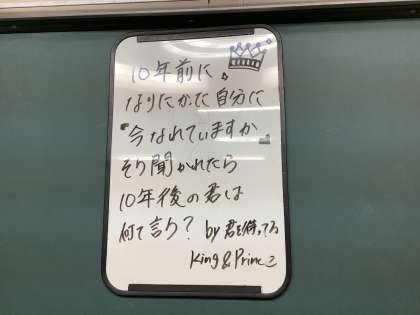 10年前に
なりたかった自分に
今なれていますか
そう聞かれたら
10年後の君は
何て言う? by 君を待ってる
King & Prince